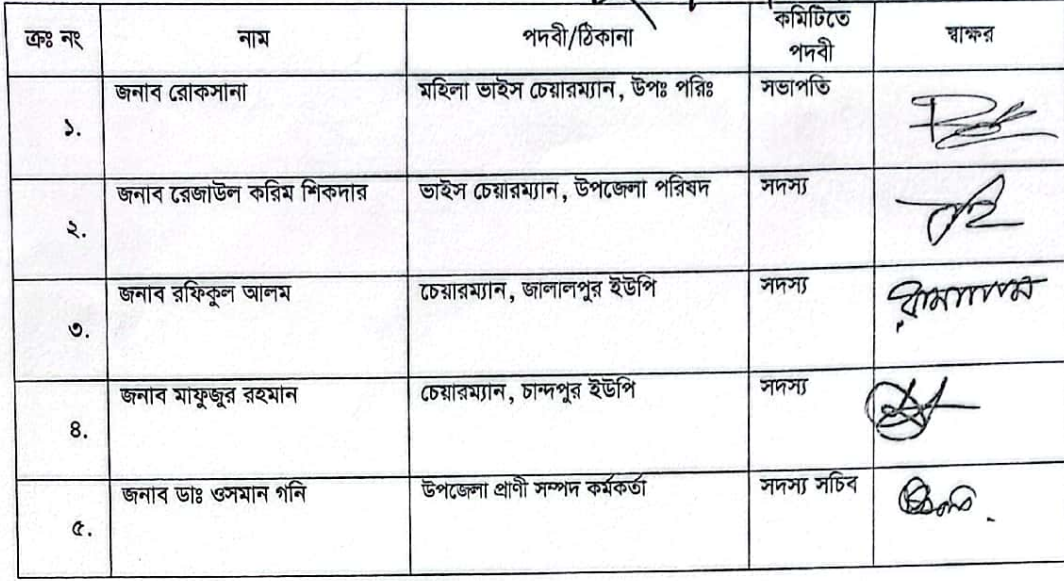 ক্রঃ নং নাম পদবী/ঠিকানা কমিটিতে পদবী স্বাক্ষর
১. জনাব রোকসানা মহিলা ভাইস চেয়ারম্যান, উপঃ পরিঃ সভাপতি
২. জনাব রেজাউল করিম শিকদার ভাইস চেয়ারম্যান, উপজেলা পরিষদ সদস্য
৩. জনাব রফিকুল আলম চেয়ারম্যান, জালালপুর ইউপি সদস্য
৪. জনাব মাফুজুর রহমান চেয়ারম্যান, চান্দপুর ইউপি সদস্য
৫. জনাব ডাঃ ওসমান গনি উপজেলা প্রাণী সম্পদ কর্মকর্তা সদস্য সচিব